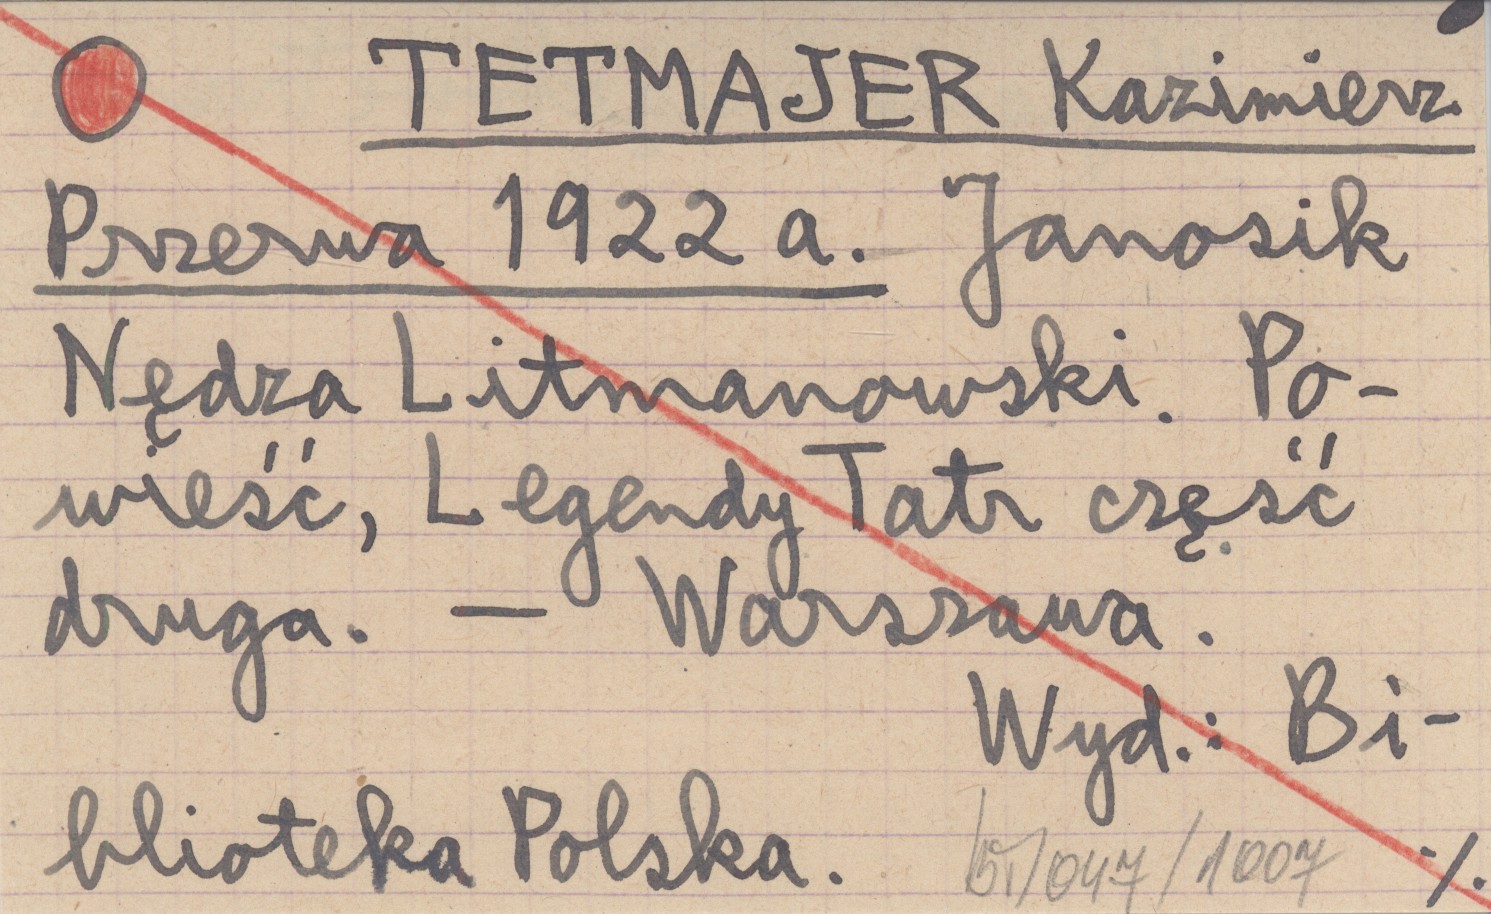 TETMAJER Kazimierz
Przerwa 1922 a. Janosik
Nędza Litmanowski. Po-
wieść, Legendy Tatr część
druga. — Warszawa.
Wyd.: Bi-
blioteka Polska.
/047/1007
·/.